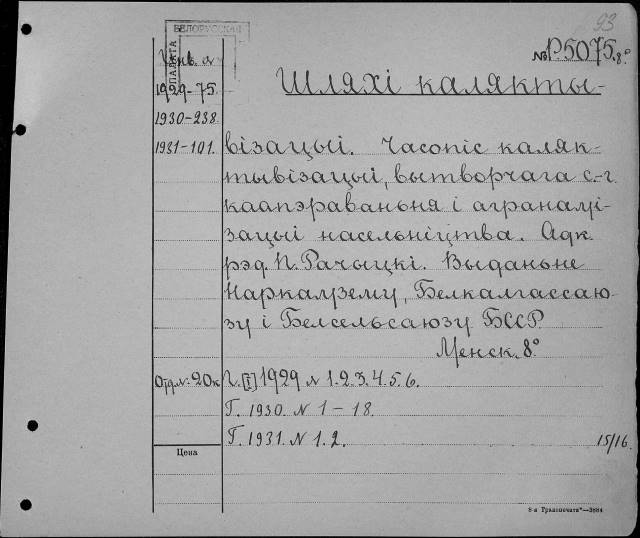 93
БЕЛОРУССКАЯ
ПАЛАТА
№ Р. 5075. 8.°
Инв. №
1929-75.
1930-238.
1931-101.
Шляхі калякты-
візацыі. Часопіс каляк-
тывізацыі, вытворчага с.-г.
каапэраваньня і
зацыі насельніцтва. Адк.
рэд. П. Рачыцкі. Выданьне
Наркамзему, Белкалгассаю-
зу і Белсельсаюзу БССР.
Менск. 8.°
Отд. №. 20к
Г. [I] 1929 № 1. 2. 3. 4. 5. 6.
Г. 1930. № 1 – 18.
Г. 1931. № 1. 2.
15/16.
Цена
8-я „Транспечать“—3884